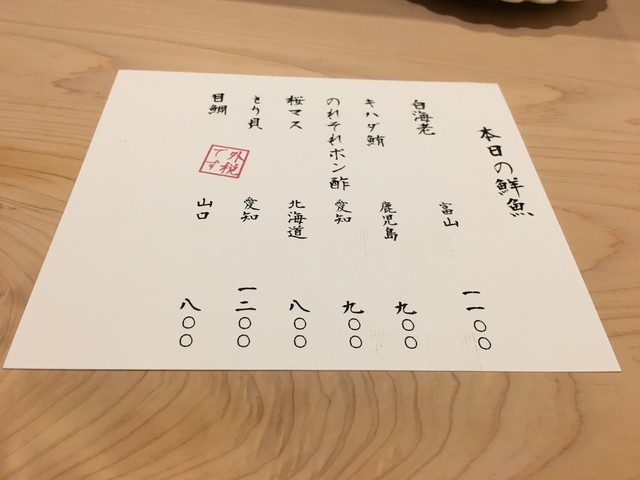 本日の鮮魚
白海老 富山 一一〇〇
キハダ鮪 鹿児島 九〇〇
のれそれポン酢 愛知 九〇〇
桜マス 北海道 八〇〇
とり貝 愛知 一二〇〇
目鯛 山口 八〇〇
外税です